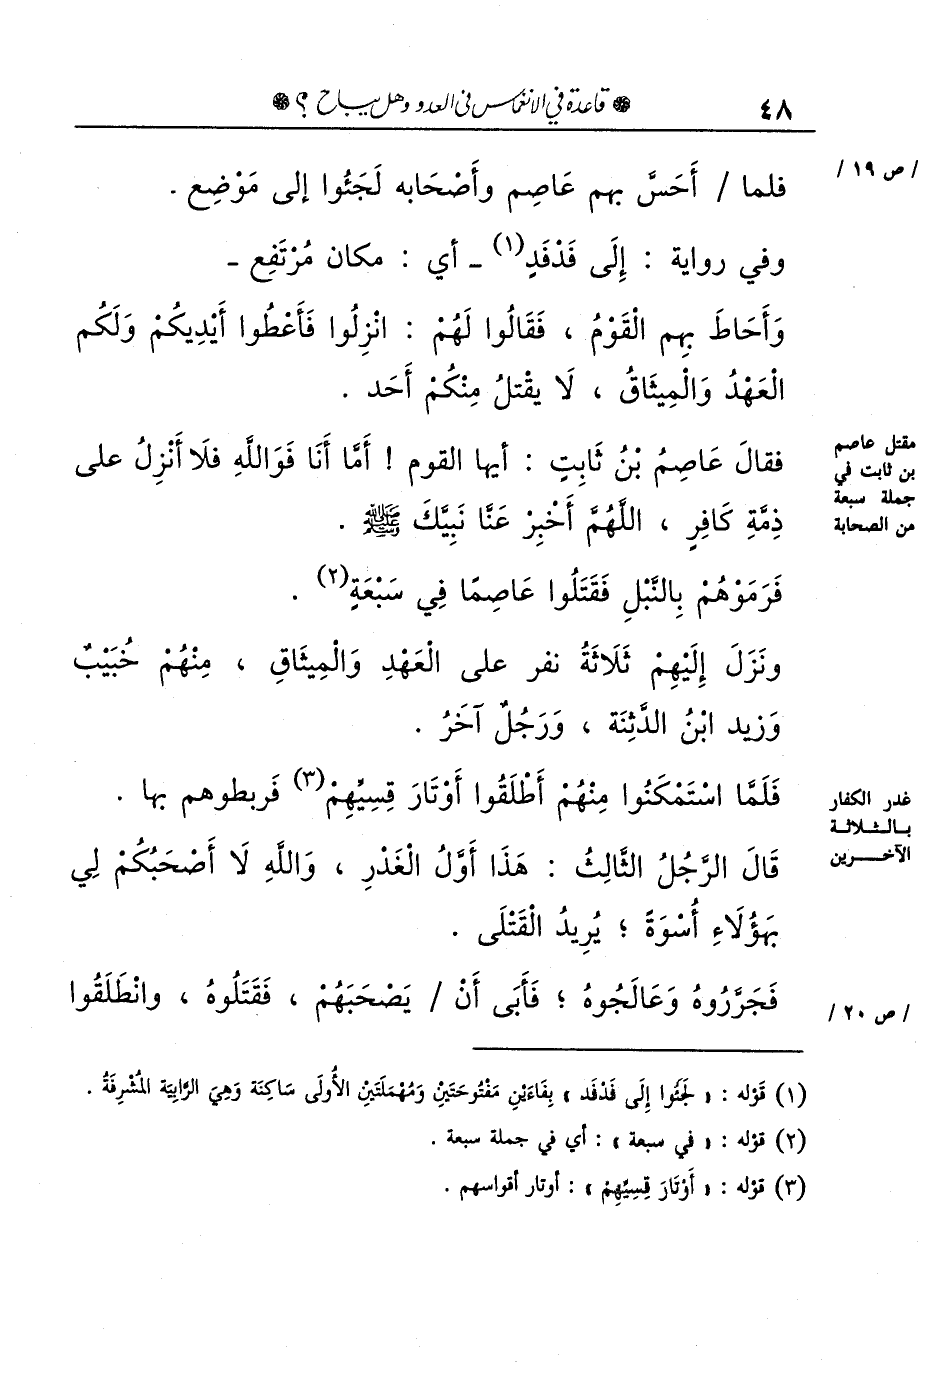 ٤٨ ❁ قاعدة في الانغماس في العدو وهل يباح ؟ ❁
/ ص ١٩ /
فلما / أَحَسَّ بهم عَاصِم وأَصْحَابه لَجَئُوا إلى مَوْضِع .
وفي رواية : إِلَى فَدْفَدٍ(١) ـ أي : مكان مُرْتَفِع ـ
وَأَحَاطَ بِهِم الْقَوْمُ ، فَقَالُوا لَهُمْ : انْزِلُوا فَأَعْطُوا أَيْدِيكُمْ وَلَكُم
الْعَهْدُ وَالْمِيثَاقُ ، لَا يقْتلُ مِنْكُمْ أَحَد .
مقتل عاصم
بن ثابت في
جملة سبعة
من الصحابة
فقالَ عَاصِمُ بْنُ ثَابِتٍ : أيها القوم ! أَمَّا أَنَا فَوَاللَّهِ فلَا أَنْزِلُ على
ذِمَّةِ كَافِرٍ ، اللَّهُمَّ أَخْبِرْ عَنَّا نَبِيَّكَ ﷺ .
فَرَمَوْهُمْ بِالنَّبْلِ فَقَتَلُوا عَاصِمًا فِي سَبْعَةٍ(٢) .
ونَزَلَ إِلَيْهِمْ ثَلَاثَةُ نفر على الْعَهْدِ وَالْمِيثَاقِ ، مِنْهُمْ خُبَيْبٌ
وَزيد ابْنُ الدَّثِنَة ، وَرَجُلٌ آخَرُ .
غدر الكفار
بالثلاثة
الآخرين
فَلَمَّا اسْتَمْكَنُوا مِنْهُمْ أَطْلَقُوا أَوْتَارَ قِسِيِّهِمْ(٣) فَربطوهم بها .
قَالَ الرَّجُلُ الثَّالِثُ : هَذَا أَوَّلُ الْغَدْرِ ، وَاللَّهِ لَا أَصْحَبُكُمْ لِي
بِهَؤُلَاءِ أُسْوَةً ؛ يُرِيدُ الْقَتْلَى .
فَجَرَّرُوهُ وَعَالَجُوهُ ؛ فَأَبَى أَنْ / يَصْحَبَهُمْ ، فَقَتَلُوهُ ، وانْطَلَقُوا
/ ص ٢٠ /
(١) قَوْله : « لَجَئُوا إِلَى فَدْفَد » بِفَاءَيْنِ مَفْتُوحَتَيْنِ وَمُهْمَلَتَيْنِ الأُولَى سَاكِنَة وَهِيَ الرَّابِيَة المُشْرِفَةُ .
(٢) قوله : « في سبعة » : أي في جملة سبعة .
(٣) قوله : « أَوْتَارَ قِسِيِّهِمْ » : أوتار أقواسهم .